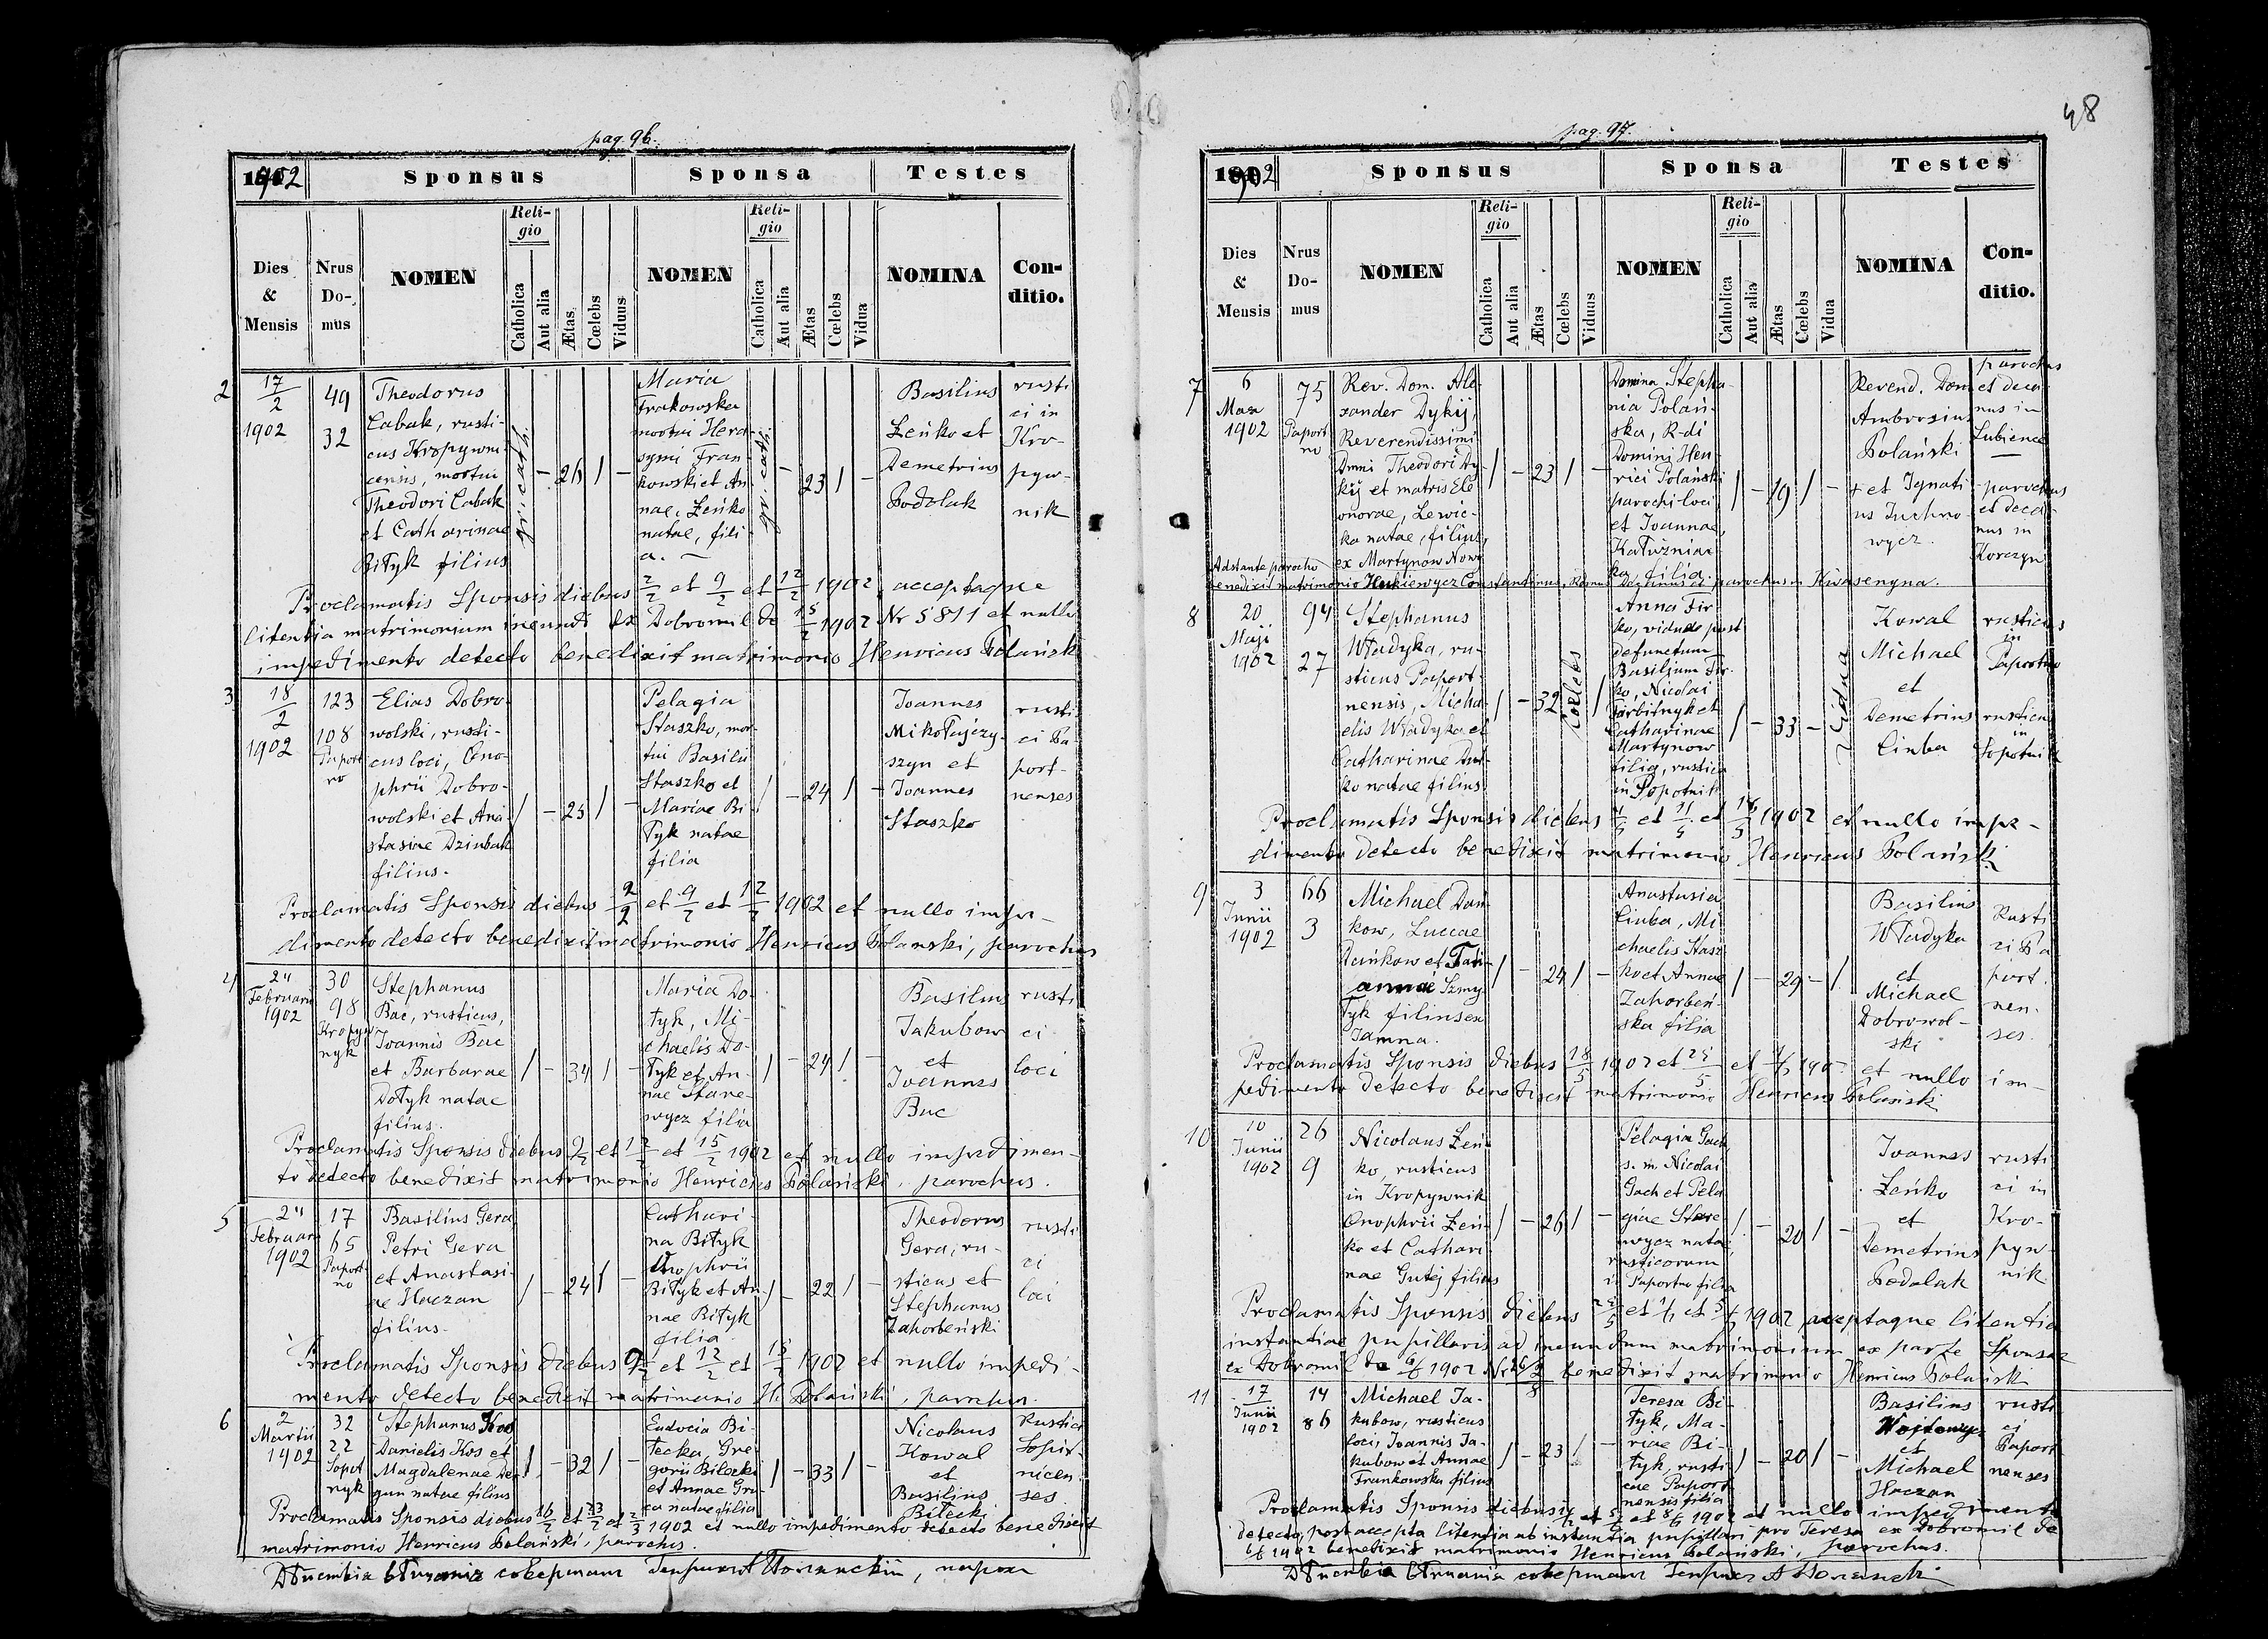 pag. 96.
1902
Sponsus
Sponsa
Testes
Dies & Mensis
Nrus Domus
NOMEN
Religio
Catholica
Aut alia
Ætas
Cœlebs
Viduus
NOMEN
Religio
Catholica
Aut alia
Ætas
Cœlebs
Vidua
NOMINA
Conditio.
2
17/2
1902
49
32
Theodorus
Cabak, rusti-
cus Kropywni-
censis, mortui
Theodori Cabak
et Catharinae
Bityk filius
gr. cath.
– 26 / –
Maria
Frakowska
mortui Hera-
symi Fran-
kowski et An-
nae, Zeńko
natae, fili-
a. –
gr. cath.
– 23 / –
Basilius
Zeńko et
Demetrius
Podolak
rusti
ci in
Kro-
pyw-
nik
Proclamatis Sponsis diebus 2/2 et 9/2 et 12/2 1902, acceptaque
licentia matrimonium ineundi ex Dobromil de 15/2 1902 Nr 5811 et nullo
impedimento detecto benedixit matrimonio Henricus Polański
3
18/2
1902
123
108
Paport
no
Elias Dobro-
wolski, rusti-
cus loci, Ono-
phrii Dobro-
wolski et Ana-
stasiae Dziubak
filius.
/ – 25 / –
Pelagia
Staszko, mor-
tui Basilii
Staszko et
Mariae Bi-
tyk natae
filia
/ – 24 / –
Joannes
Mikołajczy-
szyn et
Joannes
Staszko
rusti
ci Pa
port-
nenses
Proclamatis Sponsis diebus 2/2 et 9/2 et 12/2 1902 et nullo impe-
dimento detecto benedixit matrimonio Henricus Polanski, parochus
4
24
Februarii
1902
30
98
Kropyw
nyk
Stephanus
Bac, rusticus,
Joannis Bac
et Barbarae
Dotyk natae
filius.
/ – 34 / –
Maria Do-
tyk, Mi-
chaelis Do-
tyk et An-
nae Stare-
wycz filia
/ – 24 / –
Basilius
Jakubow
et
Joannes
Buc
rusti
ci
loci
Proclamatis Sponsis diebus 9/2 et 12/2 et 15/2 1902 et nullo impedimen-
to detecto benedixit matrimonio Henricus Polański, parochus.
5
24
Februar
1902
17
65
Paport-
no
Basilius Gera
Petri Gera
et Anastasi-
ae Haczan
filius.
/ – 24 / –
Cathari-
na Bityk
Onophrii
Bityk et An-
nae Bityk
filia.
/ – 22 / –
Theodorus
Gera, ru-
sticus et
Stephanus
Zahorbeński
rusti
ci
loci
Proclamatis Sponsis diebus 9/2 et 12/2 et 15/2 1902 et nullo impedi-
mento detecto benedixit matrimonio H. Polański, parochus.
6
2
Martii
1902
32
22
Sopot
nyk
Stephanus Kos
Danielis Kos et
Magdalenae De-
gun natae filius
/ – 32 / –
Eudocia Bi-
lecka, Gre-
gorii Bilecki
et Annae Gre-
ca natae filia
/ – 33 / –
Nicolaus
Kowal
et
Basilius
Bilecki
Rustici
Sopot-
nicen
ses
Proclamatis Sponsis diebus 16/2 et 23/2 et 2/3 1902 et nullo impedimento detecto benedixit
matrimonio Henricus Polański, parochus.
48
pag. 97.
1902
Sponsus
Sponsa
Testes
Dies & Mensis
Nrus Domus
NOMEN
Religio
Catholica
Aut alia
Ætas
Cœlebs
Viduus
NOMEN
Religio
Catholica
Aut alia
Ætas
Cœlebs
Vidua
NOMINA
Conditio.
7
6
Mar
1902
75
Paport
no
Rev. Dom. Ale-
xander Dykij,
Reverendissimi
Dmni Theodori Dy-
kij et matris Ele-
onorae, Lewic-
ka natae, filius,
ex Martynow Nowe
/ – 23 / –
Domina Stepha-
nia Polań-
ska, R-di
Domini Hen-
rici Polański
parochi loci
et Joannae,
Kałużniac-
ka filia
/ – 19 / –
Reverend. Dom
Ambrosius
Polański
+ et Ignati-
us Juchno-
wycz.
parochus
et deca-
nus in
Lubience
parochus
et deca-
nus in
Korczyn
Adstante parocho
benedixit matrimonio Constantinus, parochus in
8
20
Maji
1902
94
27
Stephanus
Władyka, ru-
sticus Paport-
nensis, Micha-
elis Władyka et
Catharinae Dut-
ko natae filius
/ – 32 coelebs /
Anna Fir-
ko, vidua post
defunctum
Basilium Fir-
ko, Nicolai
et
Catharinae
Martynow
filia, rustica
in Sopotnik
/ – 33 – vidua
Kowal
Michael
et
Demetrius
Ciuba
rusticus
in
Paportno
rusticus
in
Sopotnik
Proclamatis Sponsis diebus 4/5 et 11/5 et 18/5 1902 et nullo impe-
dimento detecto benedixit matrimonio Henricus Polański
9
3
Junii
1902
66
3
Michael Dań-
kow, Luccae
Dańkow et Tati-
annae Szmy-
tyk filius ex
Jamna.
/ – 24 / –
Anastasia
Ciuba, Mi-
chaelis Stasz-
ko et Annae
Zahorbeń-
ska filia
/ – 29 – /
Basilius
Władyka
et
Michael
Dobrowol-
ski
Rusti
ci Pa
port.
nen-
ses.
Proclamatis Sponsis diebus 18/5 1902 et 25/5 et 1/6 190 et nullo im-
pedimento detecto benedixit matrimonio Henricus Polański
10
10
Junii
1902
26
9
Nicolaus Zeń-
ko, rusticus
in Kropywnik
Onophrii Zeń-
ko et Cathari-
nae Gutej filius
/ – 26 / –
Pelagia Gach
s. m. Nicolai
Gach et Pela-
giae Stare-
wycz natae,
rusticorum
in Paportno filia
/ – 20 / –
Joannes
Zeńko
et
Demetrius
Podolak
rusti
ci in
Kro-
pyw-
nik
Proclamatis Sponsis diebus 25/5 et 1/6 et 5/6 1902 acceptaque licentia
instantiae pupillaris ad ineundum matrimonium ex parte Sponsae
ex Dobromil de 6/6 1902 benedixit matrimonio Henricus Polański
11
17
Junii
1902
14
86
Michael Ja-
kubow, rusticus
loci, Joannis Ja-
kubow et Annae
Frankowska filius
/ – 23 / –
Teresa Bi-
tyk, Ma-
riae Bi-
tyk, rusti-
cae Paport-
nensis filia
/ – 20 / –
Basilius
Wojtowycz
et
Michael
Haczan
rusti
ci
Paport
nenses
Proclamatis Sponsis diebus 1/6 et 5/6 et 8/6 1902 et nullo impedimento
detecto, post accepta licentia ab instantia pupillari pro Teresa ex Dobromil de
6/6 1902 benedixit matrimonio Henricus Polański, parochus.